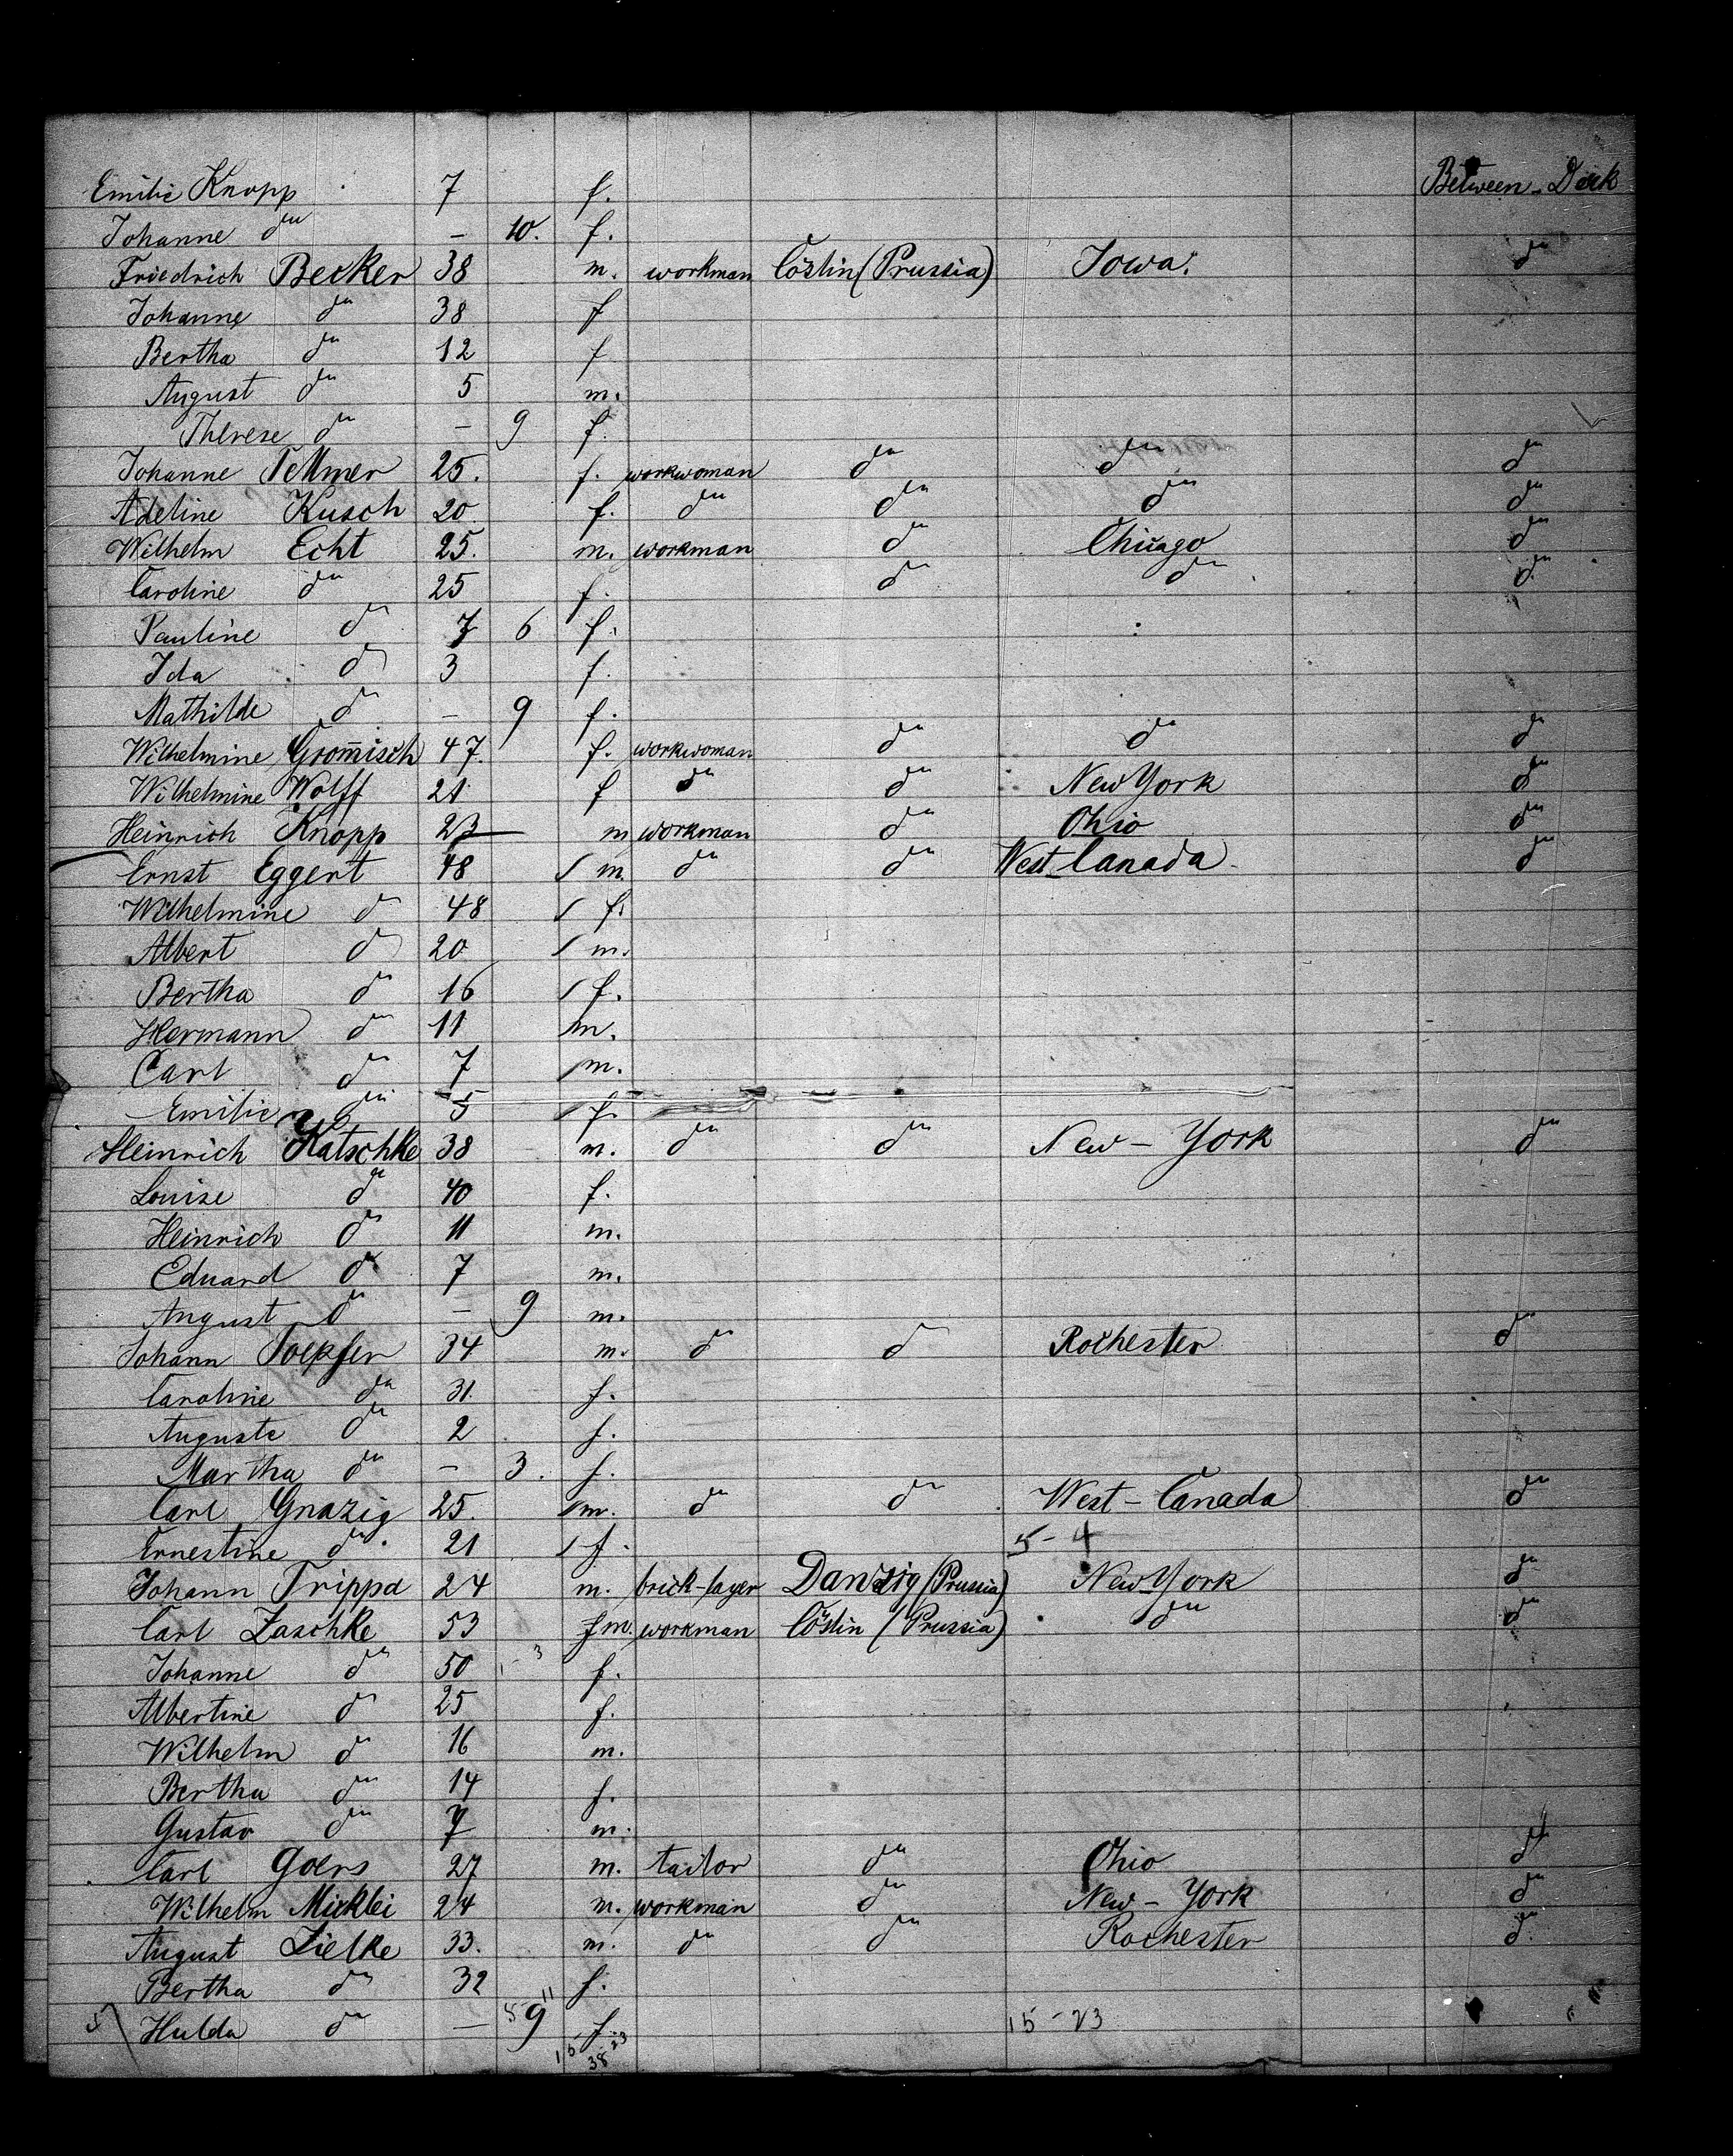 Emilie Knopp 7 f. Between-Deck
Johanne do — 10. f.
Friedrich Becker 38 m. workman Cöslin (Prussia) Iowa. do
Johanne do 38 f
Bertha do 12 f
August do 5 m.
Therese do — 9 f.
Johanne 25. f. workwoman do do do
Adeline Kusch 20 f. do do do do
Wilhelm Echt 25. m. workman do Chicago do
Caroline do 25 f. do do do
Pauline do 7 6 f.
Ida do 3 f.
Mathilde do — 9 f.
Wilhelmine Grom̄isch 47. f. workwoman do do do
Wilhelmine Wolff 21 f do do New York do
Heinrich Knopp 23 m workman do Ohio do
Ernst Eggert 48 / m. do do West-Canada do
Wilhelmine do 48 / f.
Albert do 20 / m.
Bertha do 16 / f.
Hermann do 11 / m.
Carl do 7 / m.
Emilie do 5 / f.
Heinrich Katschke 38 m. do do New-York do
Louise do 40 f.
Heinrich do 11 m.
Eduard do 7 m.
August do — 9 m.
Johann Toepfer 34 m. do do Rochester do
Caroline do 31 f.
Auguste do 2 f.
Martha do — 3. f.
Carl Gnazig 25. / m. do do West-Canada do
Ernestine do 21 / f. 5-4
Johann Trippa 24 m. brick-layer Danzig (Prussia) New York do
Carl Zaschke 53 m. workman Cöslin (Prussia) do do
Johanne do 50 f.
Albertine do 25 f.
Wilhelm do 16 m.
Bertha do 14 f.
Gustav do 7 m.
Carl Goers 27 m. tailor do Ohio do
Wilhelm Micklei 24 m. workman do New-York do
August Zielke 33. m. do do Rochester do
Bertha do 32 f.
Hulda do — 9 f. 15-23
38